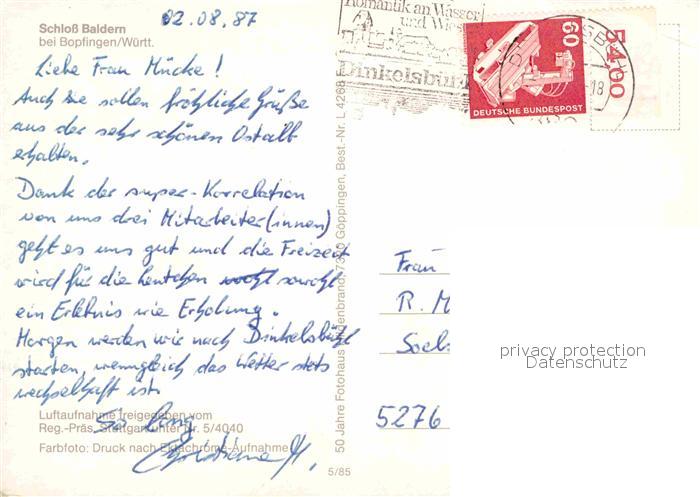 02.08.87
Schloß Baldern
bei Bopfingen/Württ.
Liebe Frau Mücke!
Auch Sie sollen fröhliche Grüße
aus der sehr schönen Ostalb
erhalten.
Dank der super-Korrelation
von uns drei Mitarbeiter(innen)
geht es uns gut und die Freizeit
wird für die sowohl
ein Erlebnis wie Erholung.
Morgen werden wir nach Dinkelsbühl
starten, wenngleich das Wetter stets
wechselhaft ist.
So long
Luftaufnahme freigegeben vom
Reg.-Präs. Stuttgart unter Nr. 5/4040
Farbfoto: Druck nach Ektachrome-Aufnahme
5/85
50 Jahre Fotohaus 7320 Göppingen, Best.-Nr. L 4268
Romantik an Wasser
und
Dinkelsbühl
60
DEUTSCHE BUNDESPOST
18
5400
Frau
R. M
Soels
5276
privacy protection
Datenschutz